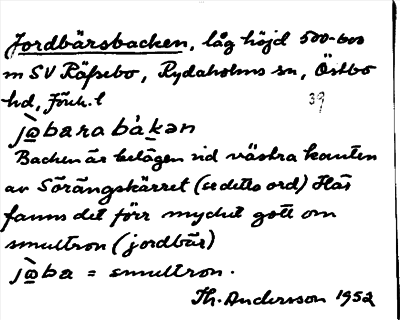 Jordbärsbacken, låg höjd 500-600
m SV Räfsebo, Rydaholms sn, Östbo
hd, Jönk. l 39
jὼbara bàkən
Backen är belägen vid västra kanten
av Sörängskärret (se detta ord) Här
fanns det förr mycket gott om
smultron (jordbär)
jὼba = smultron.
Th. Andersson 1952